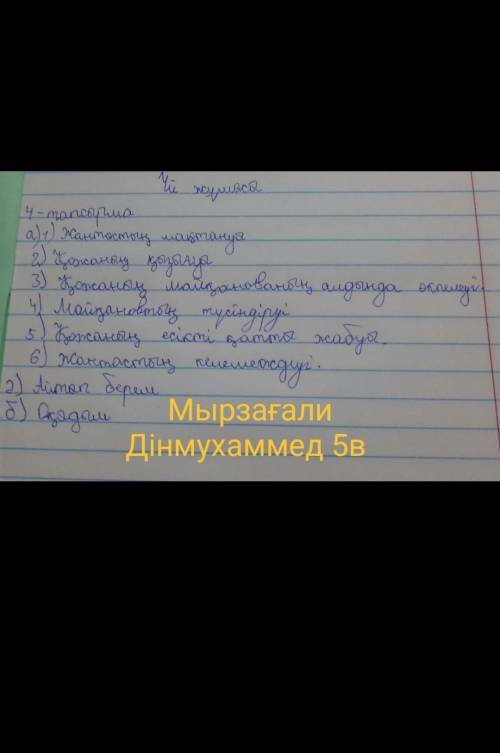 Үй жұмысы
4-тапсырма
а) 1) Жантастың мақтануы
2) Қожаның қызығуы
3) Қожаның майқанованың алдында өкпелеуі.
4) Майқановтың түсіндіруі
5) Қожаның есікті қатты жабуы.
6) Жантастың келемеждуі.
ә) Айтып берем
б) Оқыдым
Мырзағали
Дінмухаммед 5в